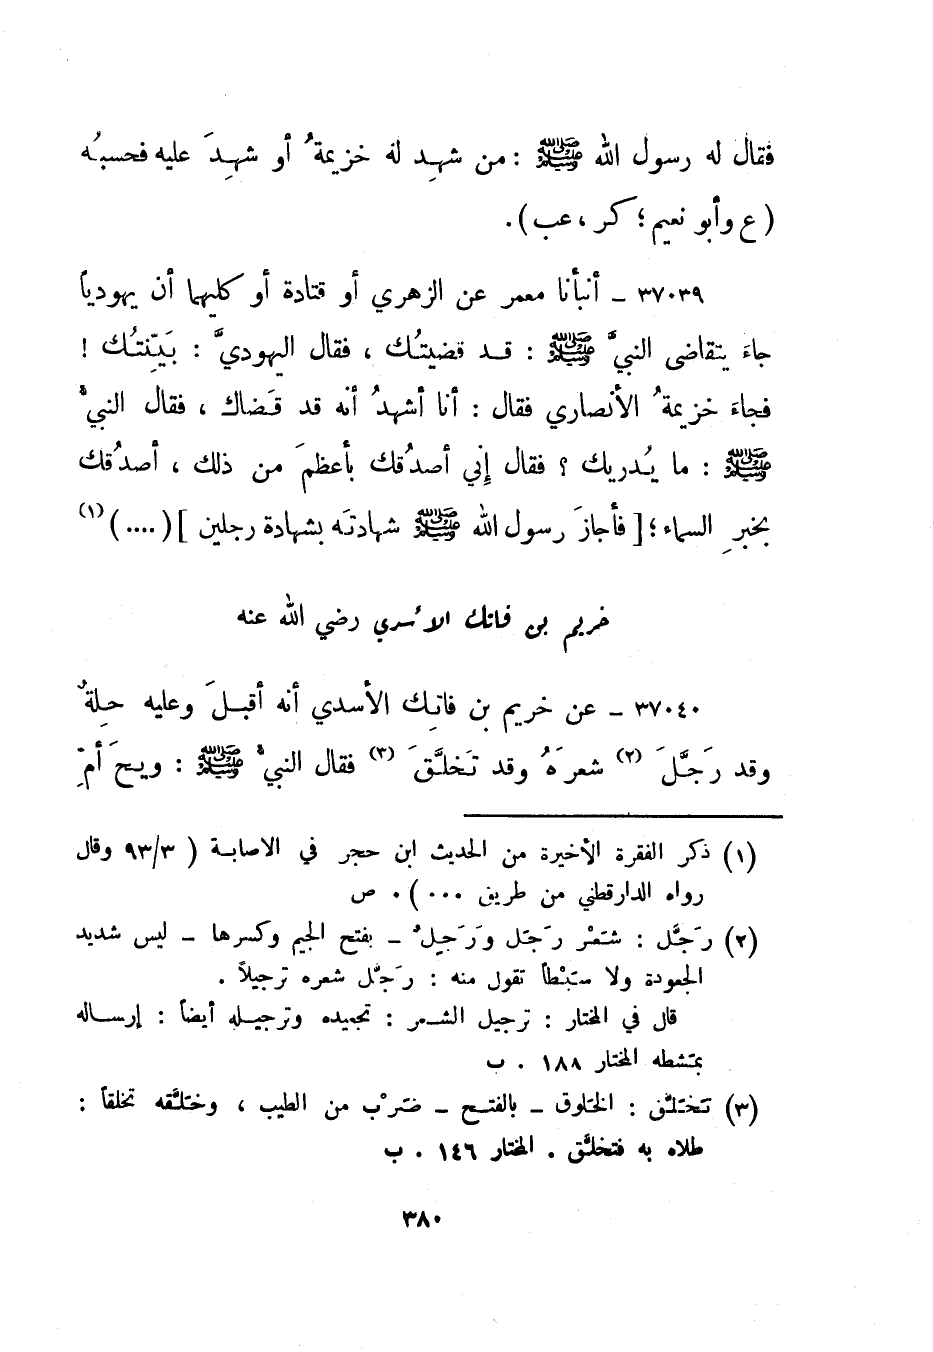 فقال له رسول الله ﷺ : من شهِد له خزيمةُ أو شهِدَ عليه فحسبُه
( ع وأبو نعيم ؛ كر ، عب ) .
٣٧٠٣٩ ـ أنبأنا معمر عن الزهري أو قتادة أو كليهما أن يهودياً
جاءَ يتقاضى النبيَّ ﷺ : قد قضيتُك ، فقال اليهوديُّ : بَيِّنتُك !
فجاءَ خزيمةُ الأنصاري فقال : أنا أشهدُ أنه قد قَضاك ، فقال النبيُّ
ﷺ : ما يُدريك ؟ فقال إِني أصدُقك بأعظمَ من ذلك ، أصدُقك
بخبرِ السماء ؛ [ فأجازَ رسول الله ﷺ شهادتَه بشهادة رجلين ] ( .... ) (١)
خريم بن فاتك الأسدي رضي الله عنه
٣٧٠٤٠ ـ عن خريم بن فاتِك الأسدي أنه أقبلَ وعليه حلةٌ
وقد رَجَّلَ (٢) شعرَهُ وقد تَخلَّقَ (٣) فقال النبيُّ ﷺ : ويحَ أمِّ
(١) ذكر الفقرة الأخيرة من الحديث ابن حجر في الاصابة ( ٩٣/٣ وقال
رواه الدارقطني من طريق ... ) . ص
(٢) رَجَّل : شَعْر رَجَل ورَجِلٌ ـ بفتح الجيم وكسرها ـ ليس شديد
الجعودة ولا سَبْطاً تقول منه : رَجَّل شعره ترجيلاً .
قال في المختار : ترجيل الشعر : تجعيده وترجيله أيضاً : إرساله
بمَشطه المختار ١٨٨ . ب
(٣) تَخَلَّق : الخَلوق ـ بالفتح ـ ضَرْب من الطيب ، وخَلَّقه تخلقاً :
طلاه به فتخلَّق . المختار ١٤٦ . ب
٣٨٠